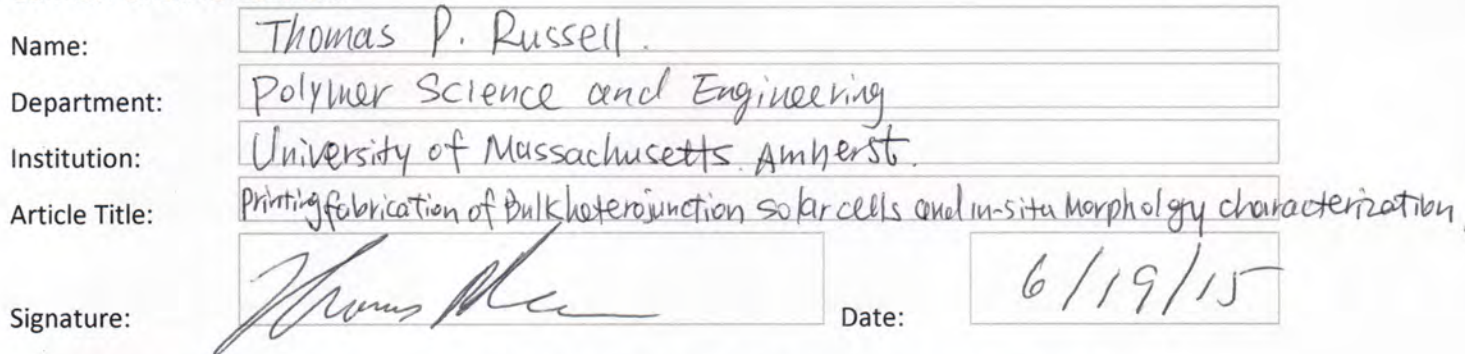 Name: Thomas P. Russell.
Department: Polymer Science and Engineering
Institution: University of Massachusetts Amherst.
Article Title: Printing fabrication of Bulk heterojunction solar cells and in-situ Morpholgy characterization
Signature: Date: 6/19/15